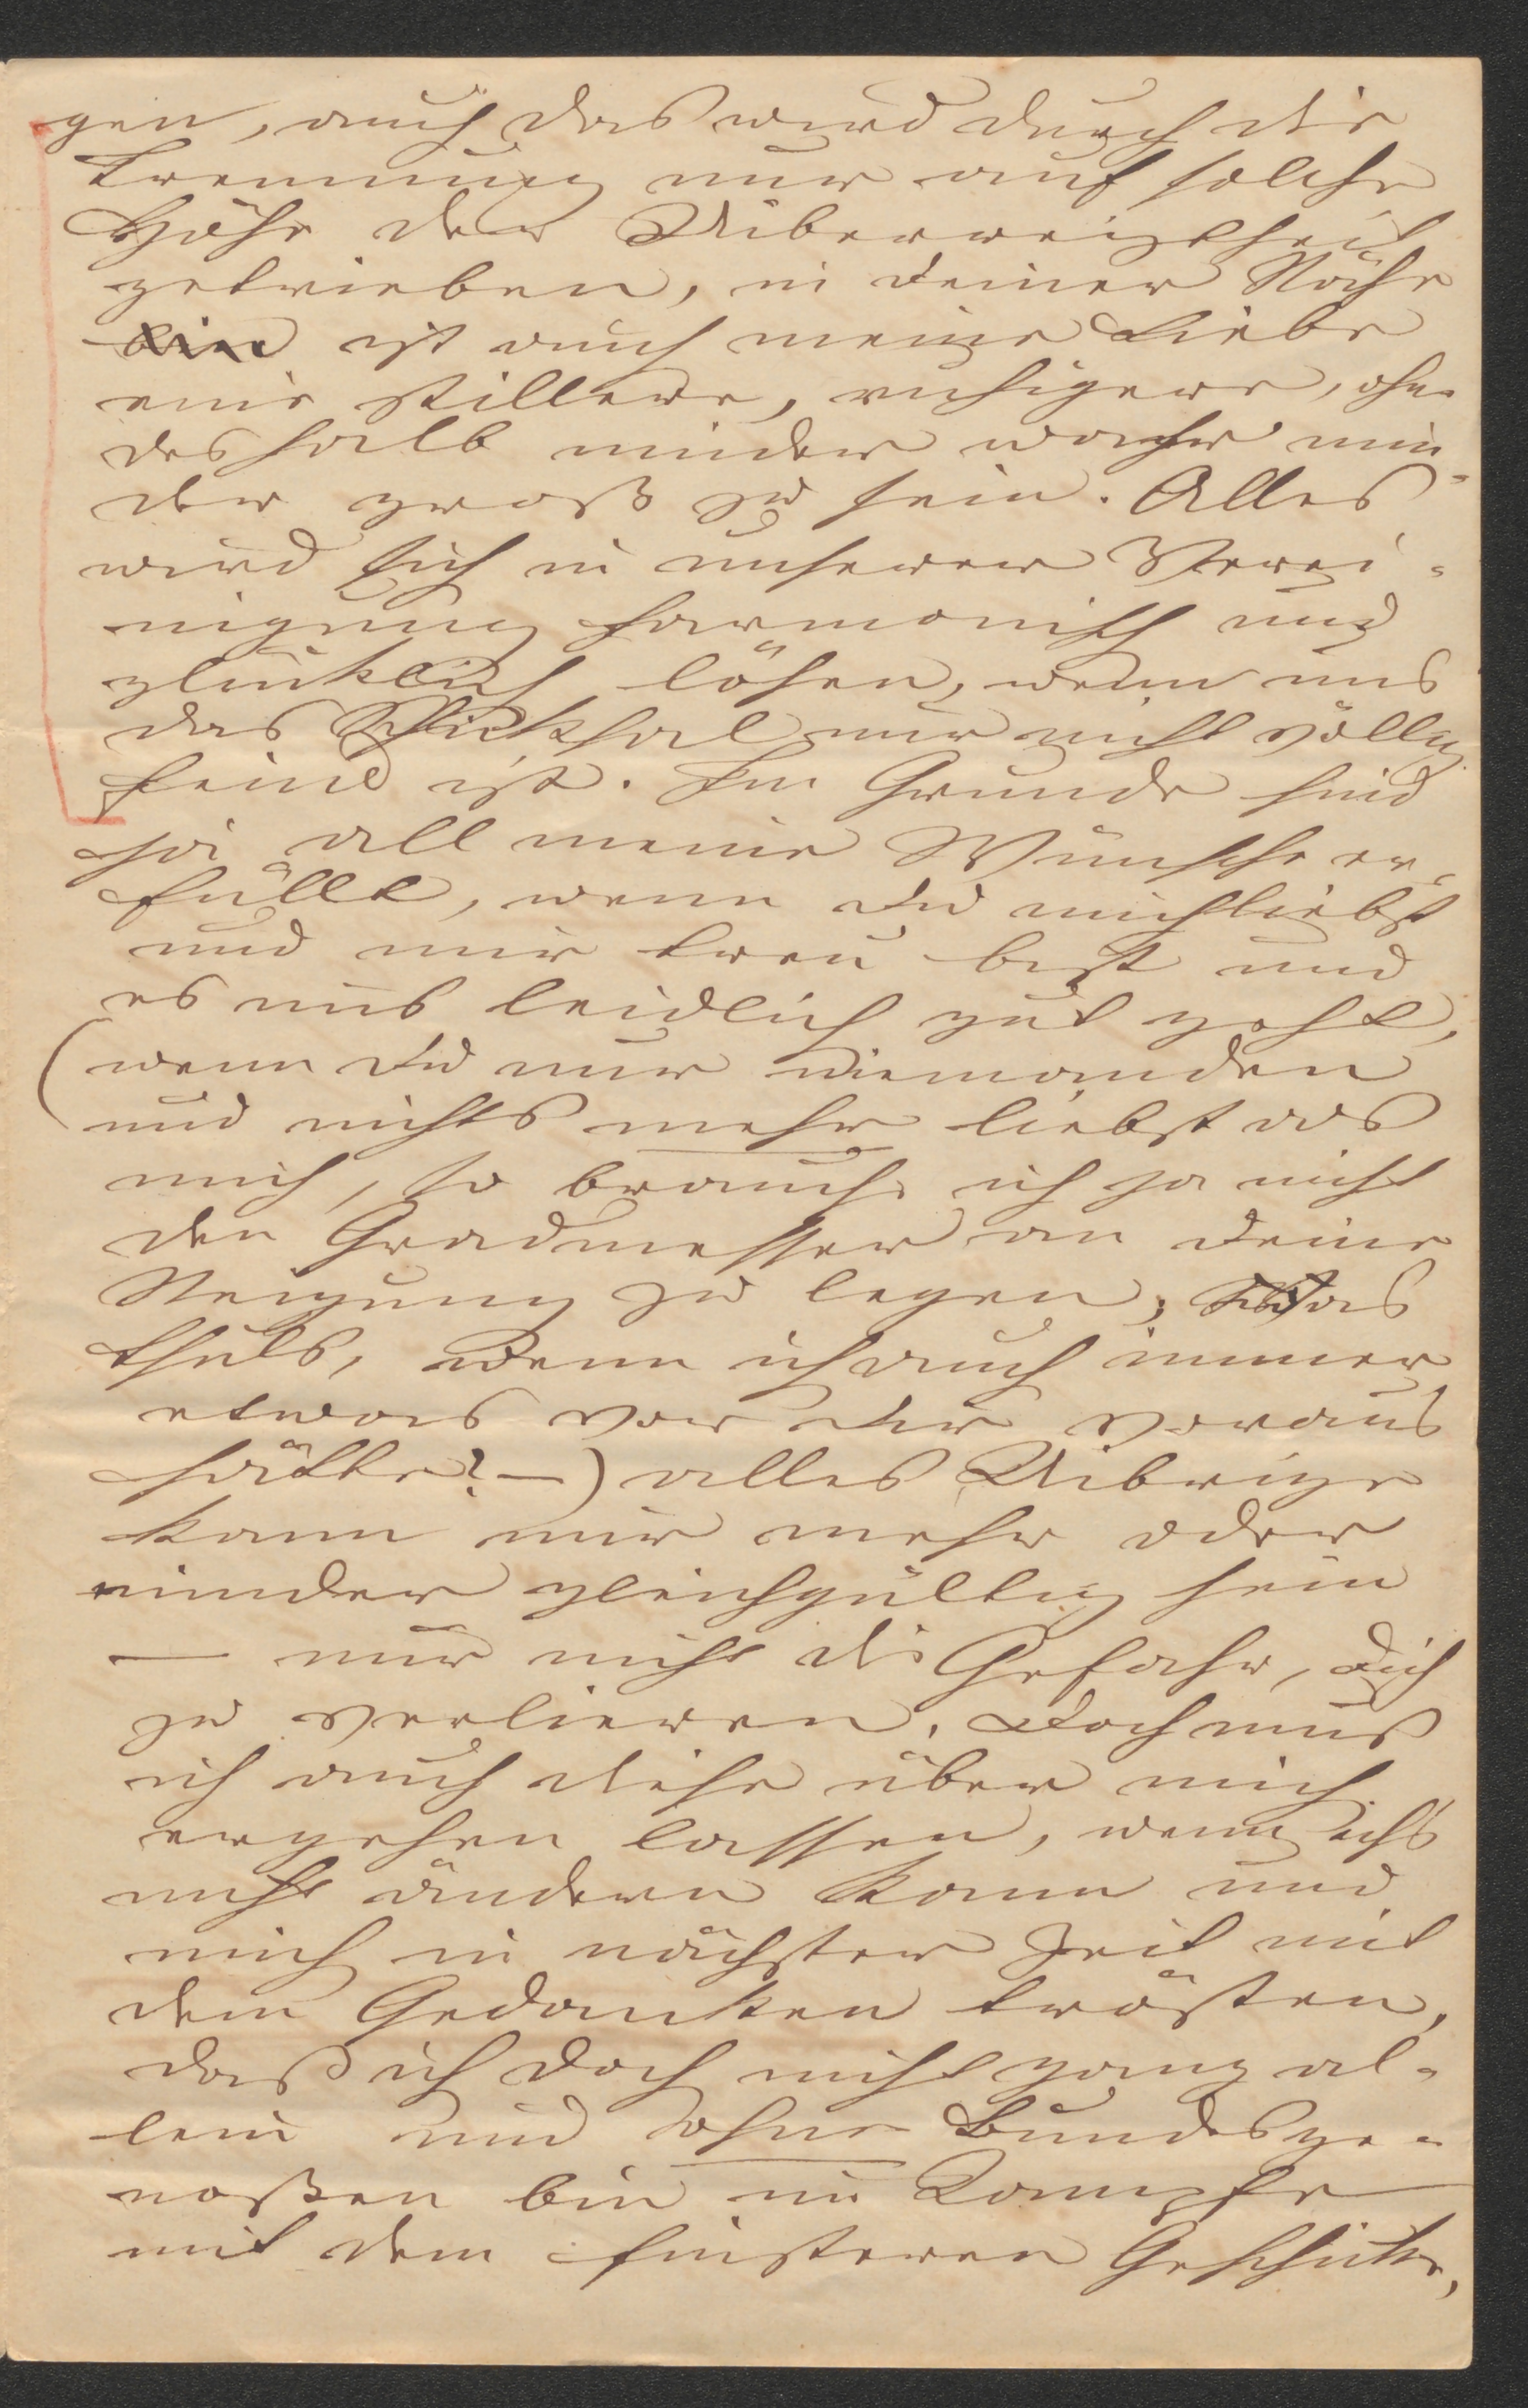 gen, auch das wird durch die
Trennung nur auf solche
Höhe der Uiberreiztheit
getrieben, in Deiner Nähe
bin ist auch meine Liebe
eine stillere, ruhigere, ohne
deshalb minder wahr min-
der groß zu sein. Alles
wird sich in unserer Verei-
nigung harmonisch und
glücklich lösen, wenn uns
das Schicksal nur nicht völlig
feind ist. Im Grunde sind
ja all meine Wünsche er-
füllt, wenn Du mich liebst
und mir treu bist und
es uns leidlich gut geht,
(wenn Du nur niemanden
und nichts mehr liebst als
mich, so brauche ich ja nicht
den Gradmesser an Deine
Neigung zu legen, was
thuts, wenn ich auch immer
etwas vor Dir voraus
hätte? —) alles Uibrige
kann mir mehr oder
minder gleichgültig sein
— nur nicht die Gefahr, Dich
zu verlieren. Doch muß
ich auch diese über mich
ergehen lassen, wenn ichs
nicht ändern kann und
mich in nächster Zeit mit
dem Gedanken trösten,
daß ich doch nicht ganz al-
lein und ohne Bundesge-
noßen bin im Kampfe
mit dem finsteren Geschicke,